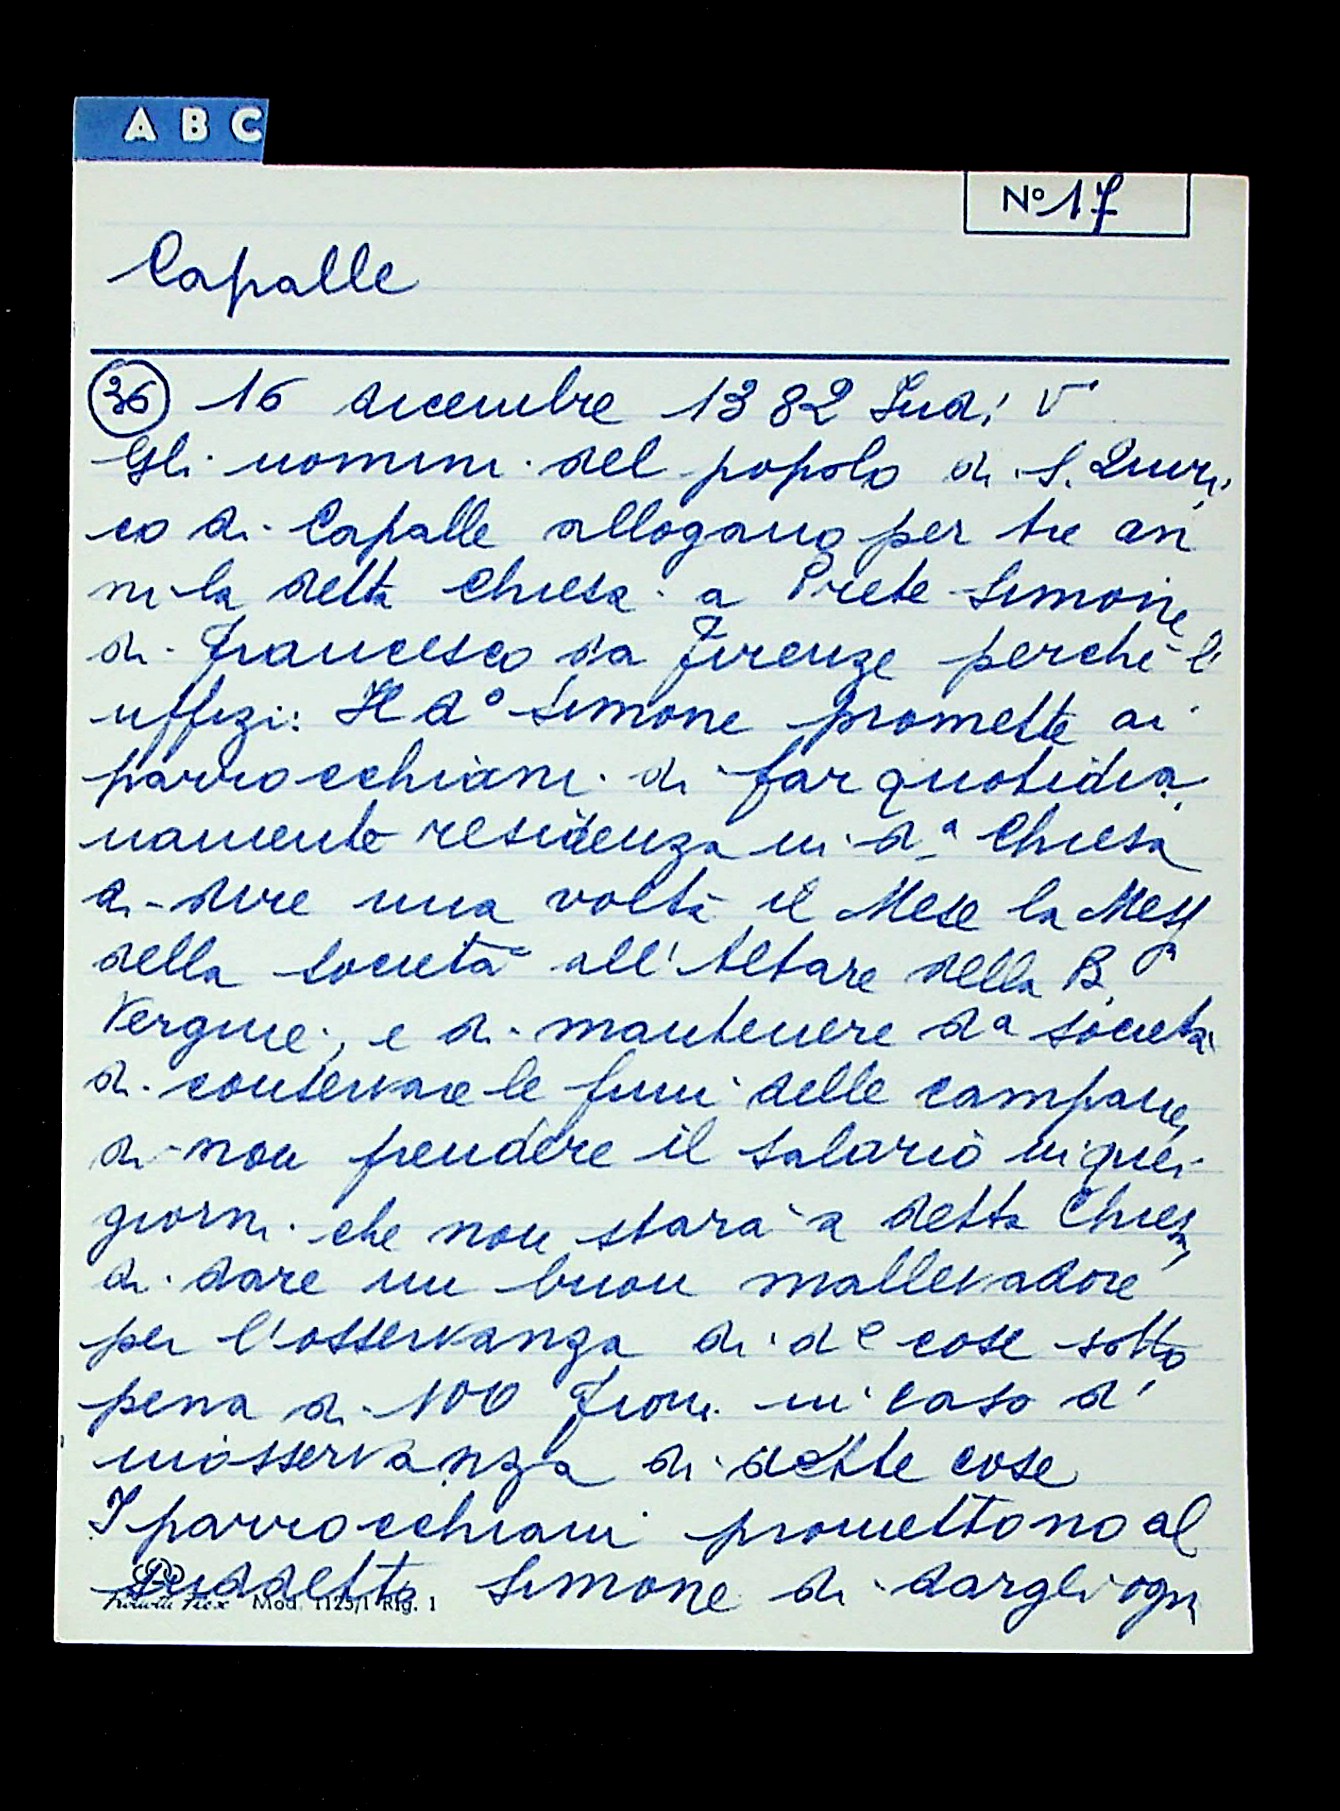 A B C
No 17
Capalle
36 16 dicembre 1382 Indi V
Gli uomini del popolo di S. Quiri
co di Capalle allogano per tre an
ni la detta Chiesa a Prete Simone
di Francesco da Firenze perchè l'
uffizi: Il do Simone promette ai
parrocchiani di far quotidia
namente residenza in da Chiesa
di dire una volta il Mese la Messa
della società all'Altare della B.
Vergine, e di mantenere da società
di conservare le funi delle campane,
di non prendere il salario in quei
giorni che non starà a detta Chiesa,
di dare un buon mallevadore
per l'osservanza di de cose sotto
pena di 100 Fiori. in caso d'
inosservanza di dette cose
I parrocchiani promettono al
suddetto Simone di dargli ogni
Mod. 1125/1 Rig. 1